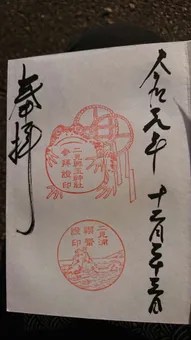 令和元年 十二月二十三日
二見興玉神社
参拝證印
二見浦
證印
奉拝